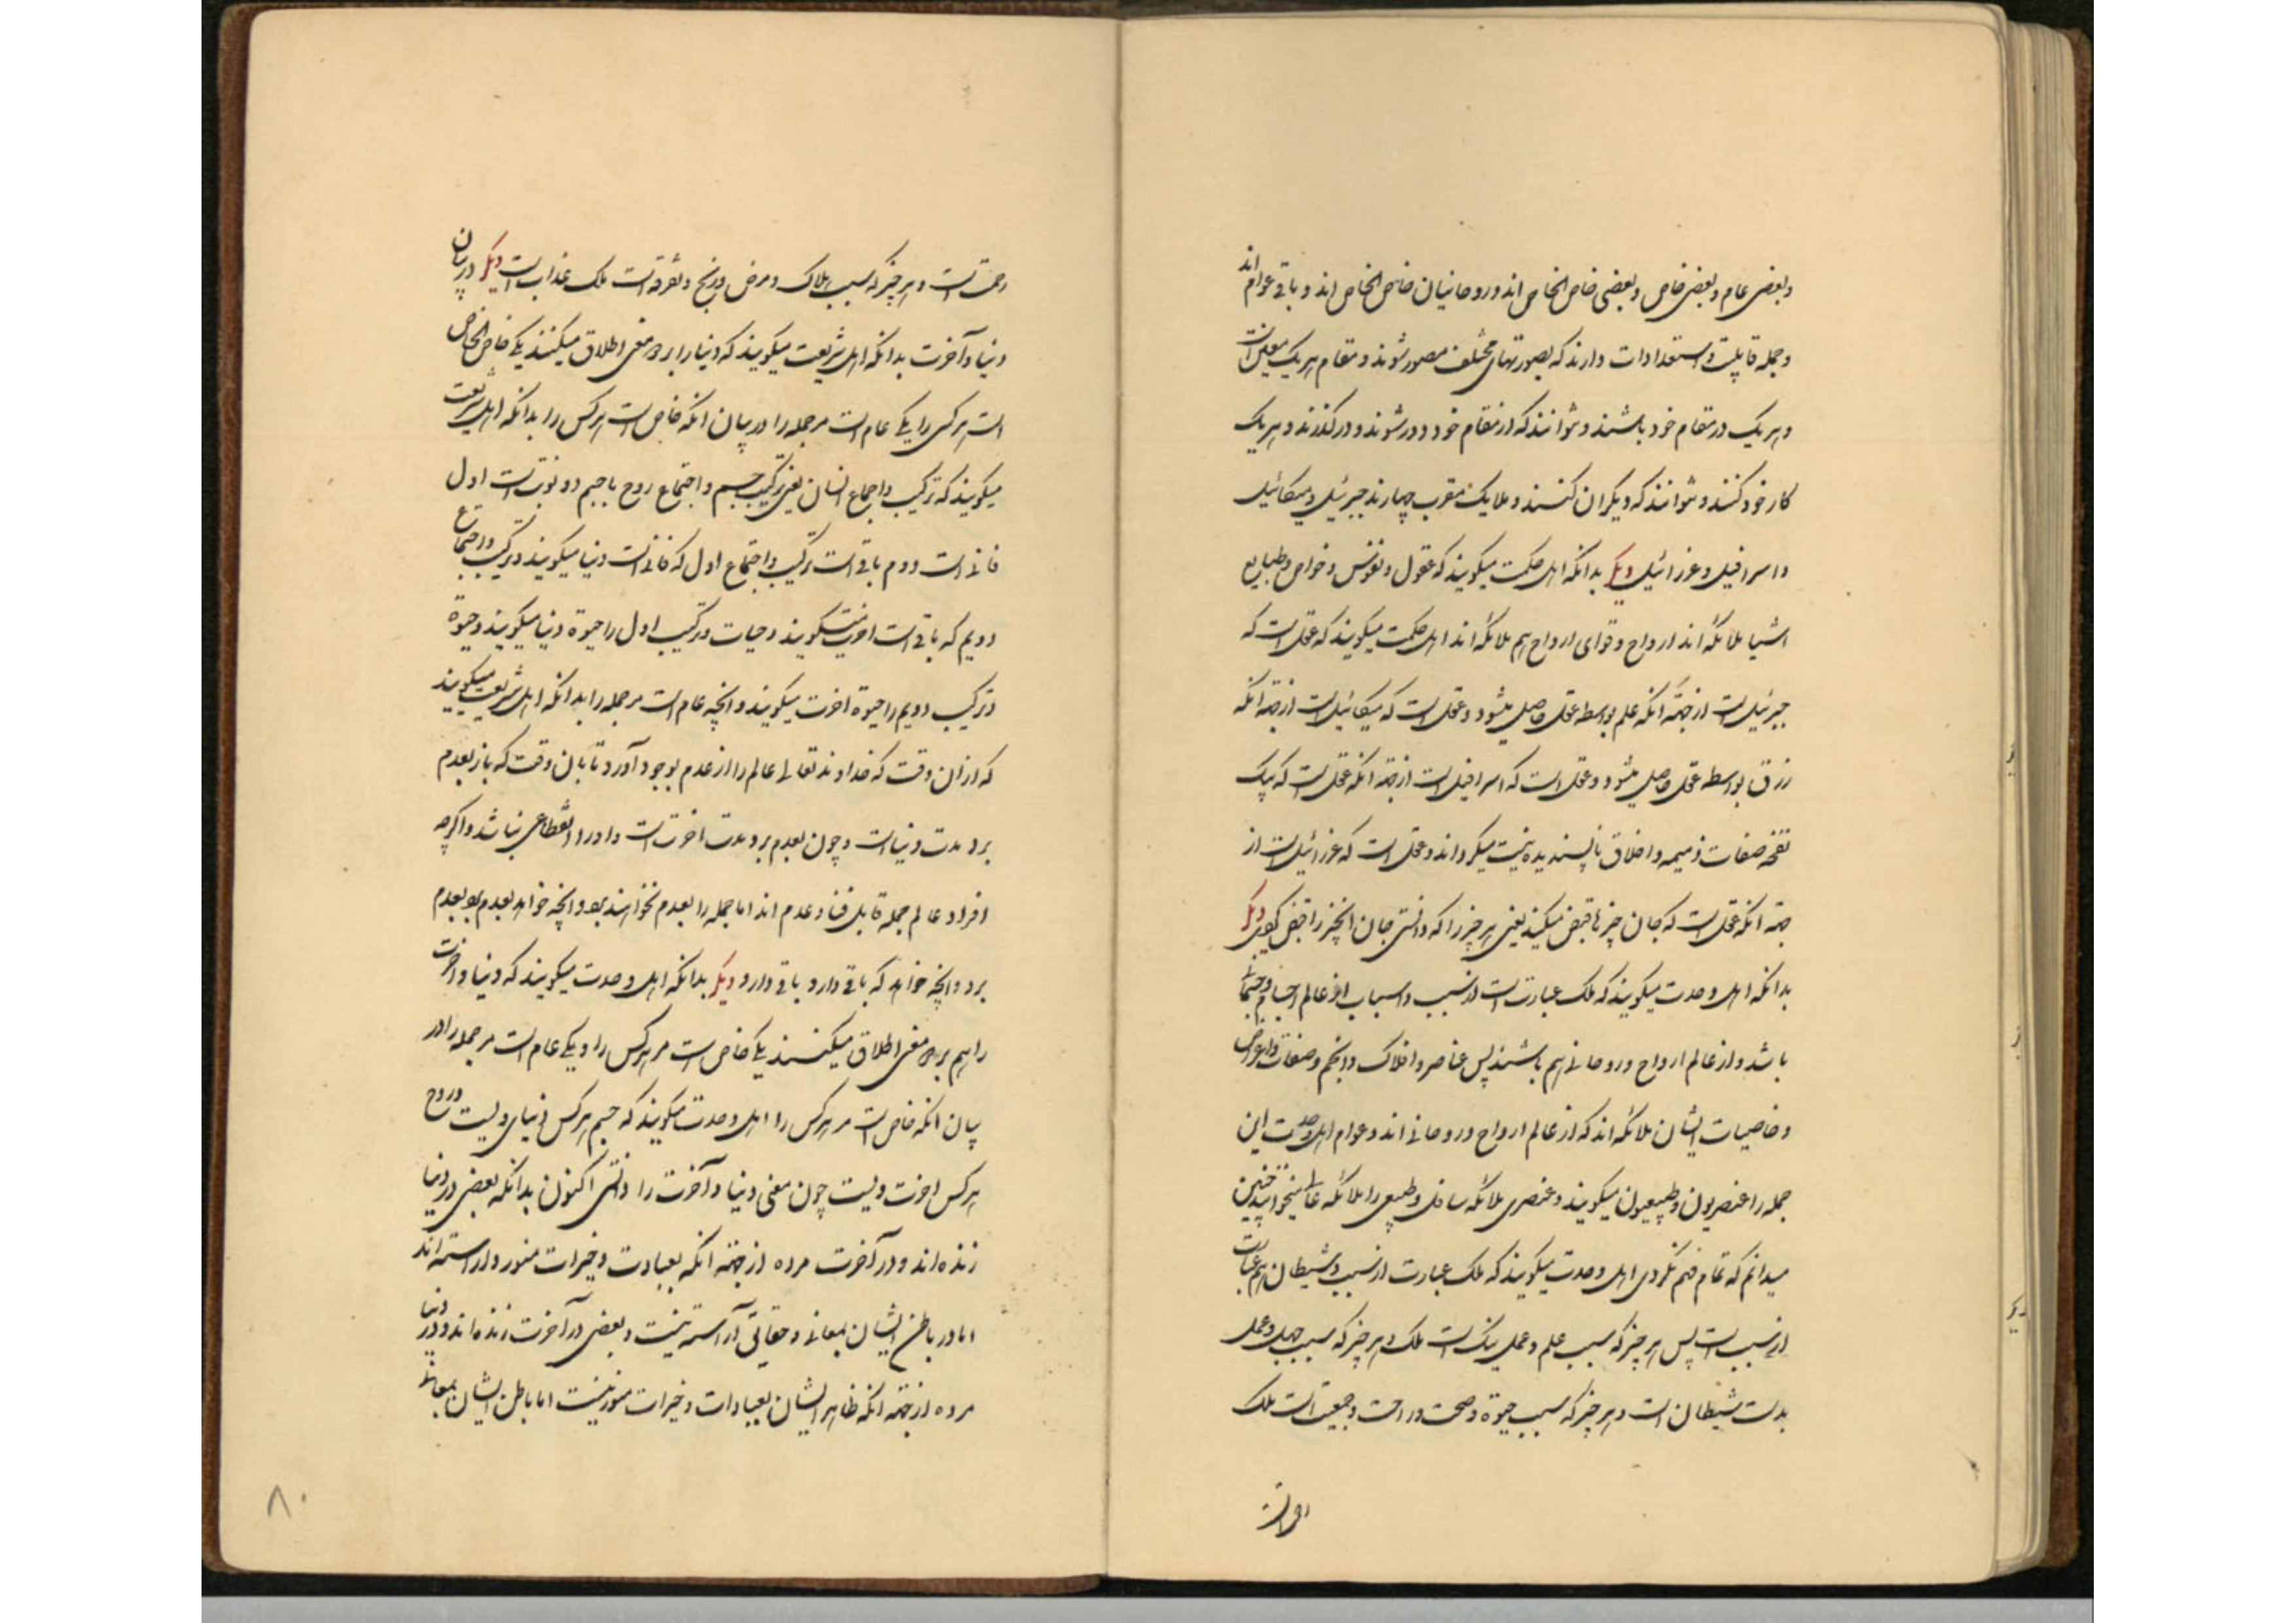 وبعضی عام وبعضی خاص وبعضی خاص الخاص اند وروحانیان خاص الخاص اند و باقی عوام اند
وجمله قابلیت و استعدادات دارند که بصورتهای مختلف مصور شوند و مقام هر یک معین است
و هر یک در مقام خود باشند و نتوانند که از مقام خود دور شوند و درگذرند و هر یک
کار خود کنند و نتوانند که دیگران کنند و ملایک مقرب چهارند جبرئیل و میکائیل
و اسرافیل و عزرائیل دیگر بدانکه اهل حکمت میگویند که عقول و نفوس و خواص و طبایع
اشیا ملائکه اند ارواح و قوای ارواح هم ملائکه اند اهل حکمت میگویند که عقل است که
جبرئیل است از جهة انکه علم بواسطه عقل حاصل میشود و عقل است که میکائیل است از جهة انکه
رزق بواسطه عقل حاصل میشود و عقل است که اسرافیل است از جهة انکه عقل است که بیک
نفخه صفات ذمیمه و اخلاق ناپسندیده نیست میکرداند و عقل است که عزرائیل است از
جهة انکه عقل است که جان چیزها قبض میکند یعنی هر چیز را که دانستی جان انچیز را قبض کردی دیگر
بدانکه اهل وحدت میگویند که ملک عبارت است از سبب و اسباب از عالم اجسام و جسمانی
باشد و از عالم ارواح و روحانی هم باشند پس عناصر و افلاک و انجم و صفات و اعراض
و خاصیات ایشان ملائکه اند که از عالم ارواح و روحانی اند و عوام اهل وحدت این
جمله را عنصریون و طبیعیون میگویند و عنصری ملائکه سافل و طبیعی را ملائکه عالی میخوانند چنین
میدانم که تمام فهم نکردی اهل وحدت میگویند که ملک عبارت از سبب و شیطان هم عبارت
از سبب است پس هر چیز که سبب علم و عمل نیک است ملک و هر چیز که سبب جهل و عمل
بدست شیطان است و هر چیز که سبب حیوة و صحت و راحت و جمعیت است ملک
رحمت است و هر چیز که سبب هلاک و مرض و رنج و تفرقه است ملک عذاب است دیگر در بیان
دنیا و آخرت بدانکه اهل شریعت میگویند که دنیا را بر دو معنی اطلاق میکنند یکی خاص الخاص
است هر کس را یکی عام است مر جمله را در بیان انکه خاص است هر کس را بدانکه اهل شریعت
میگویند که ترکیب و اجماع انسان یعنی ترکیب جسم و اجتماع روح با جسم دو نوبت است اول
فانی است و دوم باقی است ترکیب و اجتماع اول که فانیست دنیا میگویند و ترکیب و اجتماع
دویم که باقی است اخرت میگویند و حیات ترکیب اول را حیوة دنیا میگویند و حیوة
ترکیب دویم را حیوة اخرت میگویند و انچه عام است مر جمله را بدانکه اهل شریعت میگویند
که از ان وقت که خداوند تعالی عالم را از عدم بوجود آورد تا بان وقت که باز بعدم
برد مدت دنیاست و چون بعدم برد مدت اخرت است و او را انقطاعی نباشد و اگرچه
افراد عالم جمله قابل فنا و عدم اند اما جمله را بعدم نخواهند برد و انچه خواهد بعدم برد بعدم
برد و انچه خواهد که باقی دارد باقی دارد دیگر بدانکه اهل وحدت میگویند که دنیا و اخرت
را هم بر دو معنی اطلاق میکنند یکی خاص است مر هر کس را و یکی عام است مر جمله را در
بیان انکه خاص است مر هر کس را اهل وحدت میگویند که جسم هر کس دنیای ویست و روح
هر کس اخرت ویست چون معنی دنیا و آخرت را دانستی اکنون بدانکه بعضی در دنیا
زنده اند و در آخرت مرده از جهة انکه بعبادت و خیرات منور و اراسته اند
اما در باطن ایشان بمعانی و حقایق آراسته نیست و بعضی در آخرت زنده اند و در دنیا
مرده از جهة انکه ظاهر ایشان بعبادات و خیرات منور نیست اما باطن ایشان بمعانی
۸۰